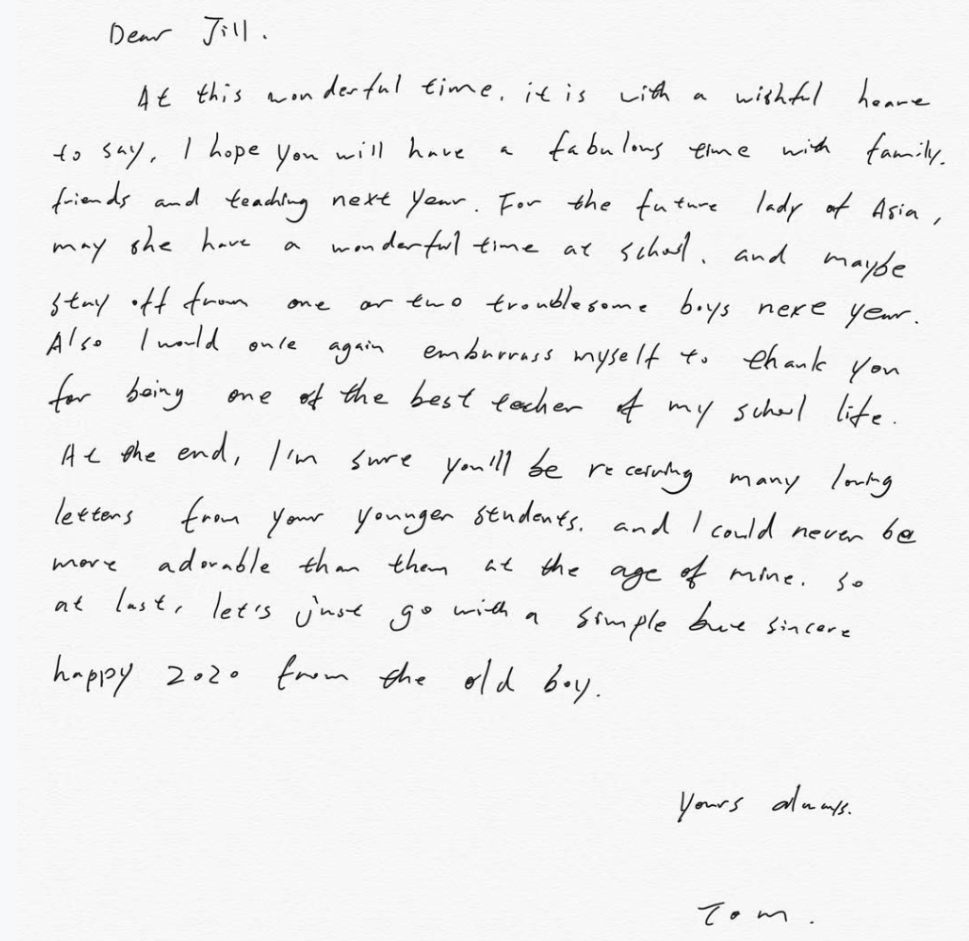 Dear Jill.
At this wonderful time, it is with a wishful heart
to say, I hope you will have a fabulous time with family,
friends and teaching next year. For the future lady of Asia,
may she have a wonderful time at school, and maybe
stay off from one or two troublesome boys next year.
Also I would once again embarrass myself to thank you
for being one of the best teacher of my school life.
At the end, I'm sure you'll be receiving many loving
letters from your younger students, and I could never be
more adorable than them at the age of mine. So
at last, let's just go with a simple but sincere
happy 2020 from the old boy.
Yours always.
Tom.